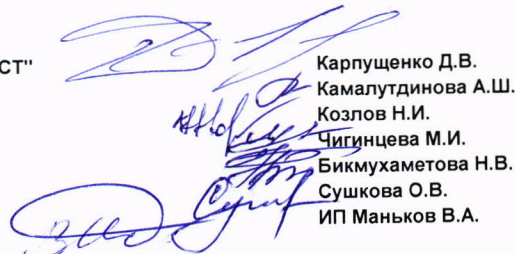 СТ"
Карпущенко Д.В.
Камалутдинова А.Ш.
Козлов Н.И.
Чигинцева М.И.
Бикмухаметова Н.В.
Сушкова О.В.
ИП Маньков В.А.